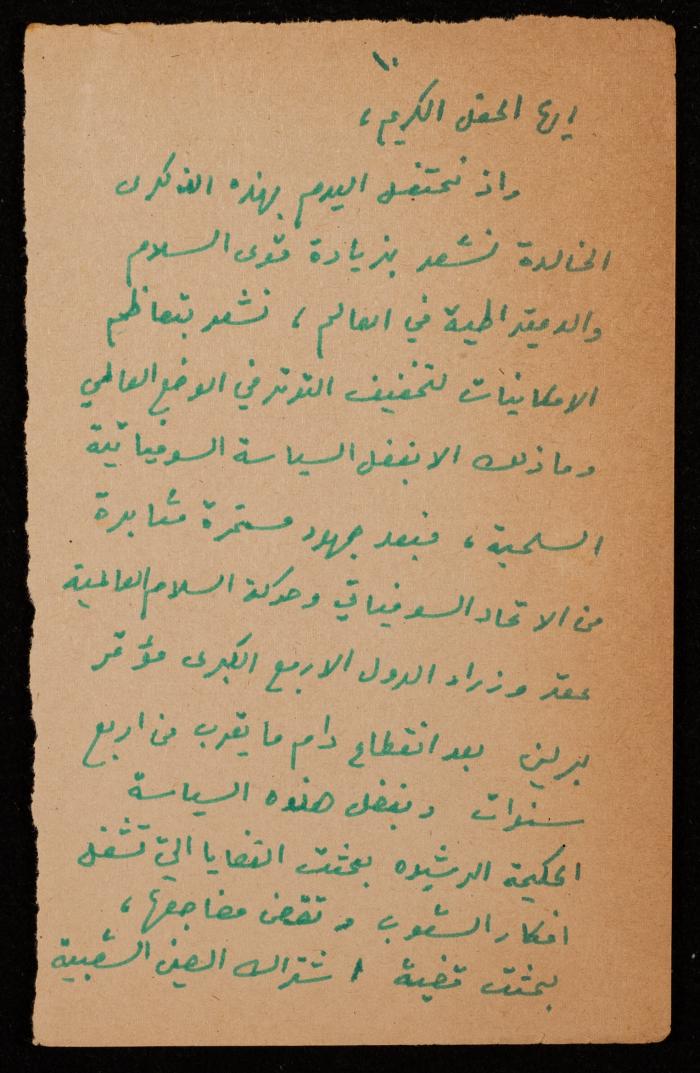 ١٠
ايها الحفل الكريم ،
واذ نحتفل اليوم بهذه الذكرى
الخالدة نشعر بزيادة قوى السلام
والديمقراطية في العالم ، نشعر بتعاظم
الامكانيات لتخفيف التوتر في الوضع العالمي
وما ذلك الا بفضل السياسة السوفياتية
السلمية ، فبعد جهود مستمرة مثابرة
من الاتحاد السوفياتي وحركة السلام العالمية
عقد وزراء الدول الاربع الكبرى مؤتمر
برلين بعد انقطاع دام ما يقرب من اربع
سنوات وبفضل هذه السياسة
الحكيمة الرشيده بحثت القضايا التي تشغل
افكار الشعوب و تقض مضاجعها ،
بحثت قضية اشتراك الصين الشعبية